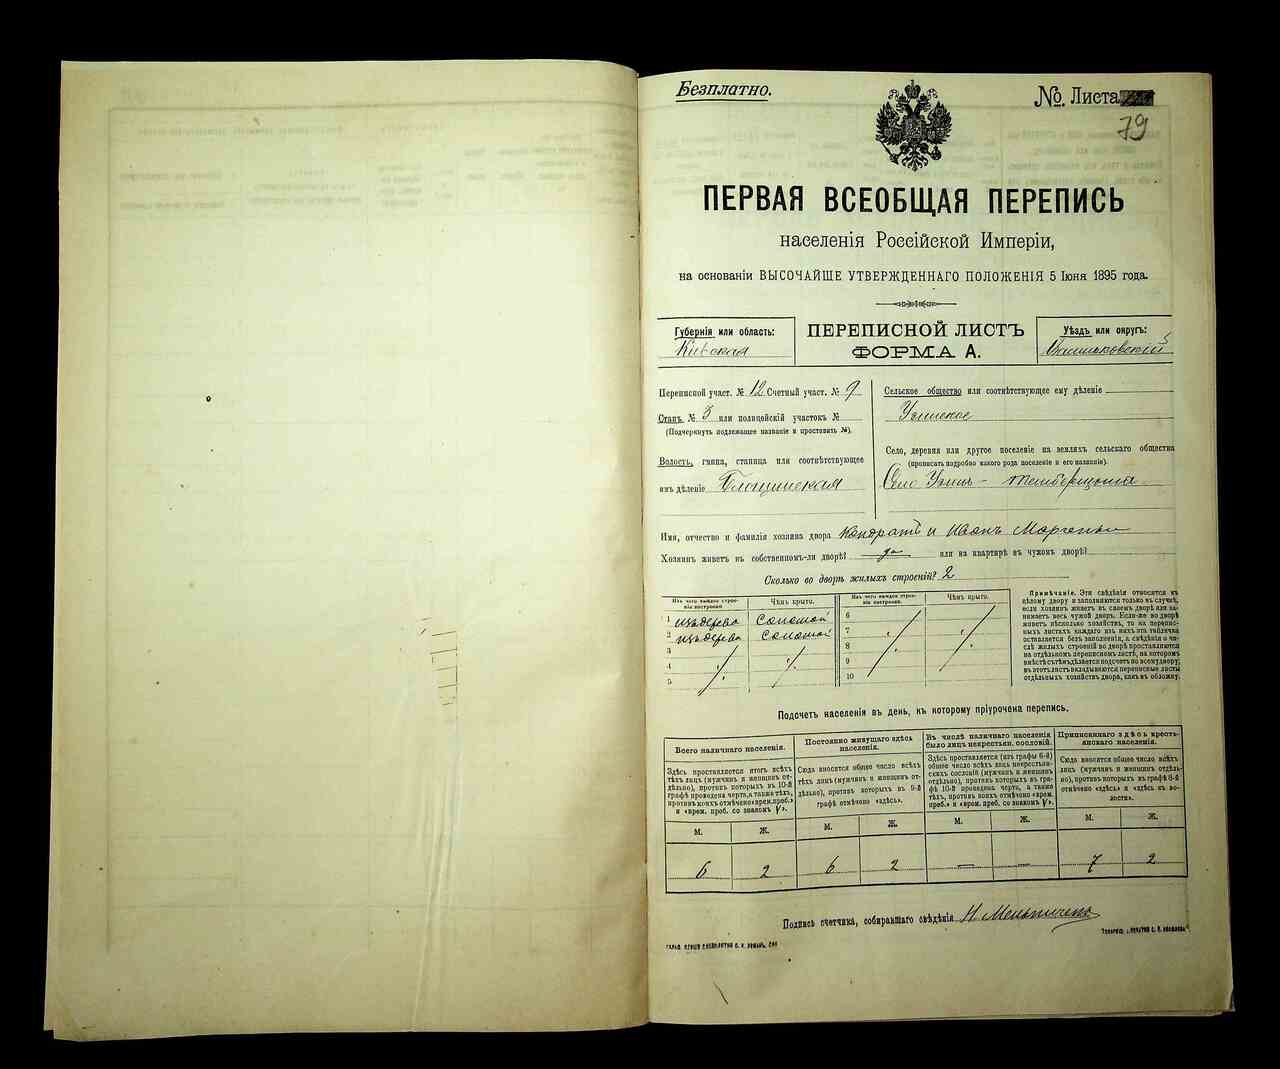 Безплатно.
№ Листа
79
ПЕРВАЯ ВСЕОБЩАЯ ПЕРЕПИСЬ
населенія Россійской Имперіи,
на основаніи ВЫСОЧАЙШЕ УТВЕРЖДЕННАГО ПОЛОЖЕНІЯ 5 Іюня 1895 года.
Губернія или область:
Кіевская
ПЕРЕПИСНОЙ ЛИСТЪ
ФОРМА А.
Уѣздъ или округъ:
Васильковскій
Переписной участ. № 12 Счетный участ. № 9
Станъ № 3 или полицейскій участокъ №
(Подчеркнуть подлежащее названіе и проставить №).
Волость, гмина, станица или соотвѣтствующее
имъ дѣленіе
Сельское общество или соотвѣтствующее ему дѣленіе
Узинское
Село, деревня или другое поселеніе на земляхъ сельскаго общества
(прописать подробно какого рода поселеніе и его названіе).
Село Узинъ-
Имя, отчество и фамилія хозяина двора Кондратъ и Иванъ Марченки
Хозяинъ живетъ въ собственномъ-ли дворѣ? да или на квартирѣ въ чужомъ дворѣ?
Сколько во дворѣ жилыхъ строеній? 2
Изъ чего каждое строеніе построено.
Чѣмъ крыто.
1 изъ дерева Соломой
2 изъ дерева Соломой
3
4
5
Изъ чего каждое строеніе построено.
Чѣмъ крыто.
6
7
8
9
10
Примѣчаніе. Эти свѣдѣнія относятся къ
цѣлому двору и заполняются только въ случаѣ,
если хозяинъ живетъ въ своемъ дворѣ или занимаетъ
весь чужой дворъ. Если-же во дворѣ
живетъ нѣсколько хозяйствъ, то на переписныхъ
листахъ каждаго изъ нихъ эта табличка
оставляется безъ заполненія, а свѣдѣнія о числѣ
жилыхъ строеній во дворѣ проставляются
на отдѣльномъ переписномъ листѣ, на которомъ
вмѣстѣ съ тѣмъ дѣлается подсчетъ по всему двору;
въ этотъ листъ вкладываются переписные листы
отдѣльныхъ хозяйствъ двора, какъ въ обложку.
Подсчетъ населенія въ день, къ которому пріурочена перепись.
Всего наличнаго населенія.
Здѣсь проставляется итогъ всѣхъ
тѣхъ лицъ (мужчинъ и женщинъ отдѣльно),
противъ которыхъ въ 10-й
графѣ проведена черта, а также тѣхъ,
противъ коихъ отмѣчено «врем. преб.»
и «врем. преб. со знакомъ V».
Постоянно живущаго здѣсь
населенія.
Сюда вносится общее число всѣхъ
тѣхъ лицъ (мужчинъ и женщинъ отдѣльно),
противъ которыхъ въ 9-й
графѣ отмѣчено «здѣсь».
Въ числѣ наличнаго населенія
было лицъ некрестьян. сословій.
Здѣсь проставляется (изъ графы 6-й)
общее число всѣхъ лицъ некрестьянскихъ
сословій (мужчинъ и женщинъ
отдѣльно), противъ которыхъ въ графѣ
10-й проведена черта, а также
тѣхъ, противъ коихъ отмѣчено «врем.
преб.» и «врем. преб. со знакомъ V».
Приписаннаго здѣсь крестьянскаго
населенія.
Сюда вносится общее число всѣхъ
лицъ (мужчинъ и женщинъ отдѣльно),
противъ которыхъ въ графѣ 8-й
отмѣчено «здѣсь» и «здѣсь въ волости».
М. Ж. М. Ж. М. Ж. М. Ж.
6 2 6 2 — — 7 2
Подпись счетчика, собиравшаго свѣдѣнія Н. Мельниченко